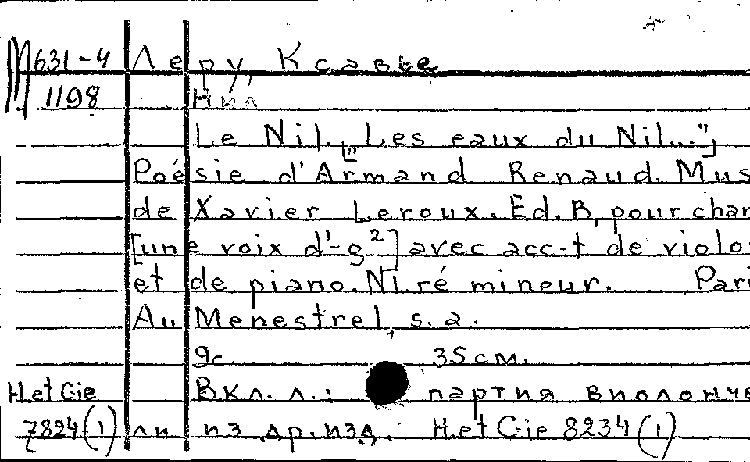 М631-4 Леру, Ксавье
1198 Нил
Le Nil. ["Les eaux du Nil..."]
Poésie d'Armand Renaud. Mus
de Xavier Leroux. Ed. B, pour chan
[une voix d'-g²] avec acc-t de violo
et de piano. N1. ré mineur. Pari
Au Menestrel, s.a.
9с 35 см.
H. et Cie Вкл. л.: партия виолонче
7824(1) ли из др. изд. H. et Cie 8234(1)